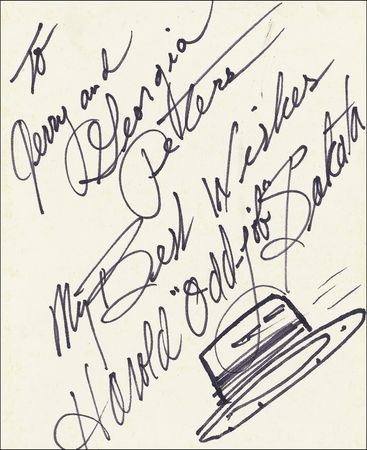 To
Jerry and
Georgia
Peters
My Best Wishes
Harold "Odd-job" Sakata